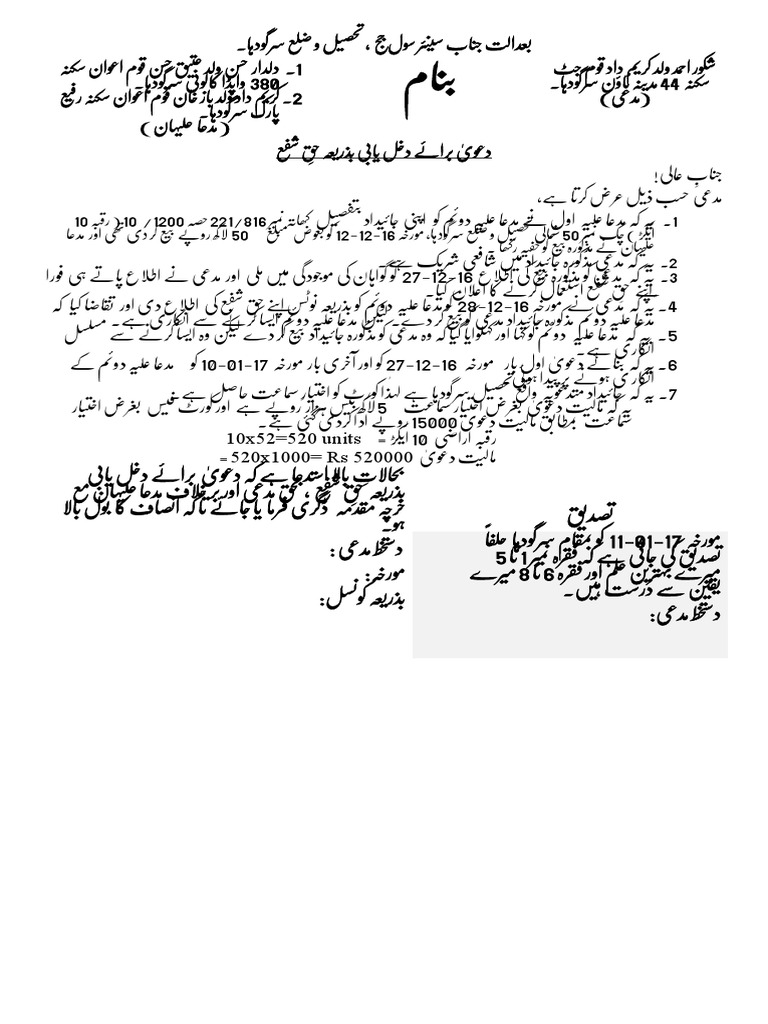 بعدالت جناب سینئر سول جج ، تحصیل و ضلع سرگودہا۔
شکور احمد ولد کریم داد قوم جٹ
سکنہ 44 مدینہ ٹاؤن سرگودہا۔
(مدعی)
بنام
1۔ دلدار حسن ولد عتیق حسن قوم اعوان سکنہ
380 واپڈا کالونی سرگودہا۔
2۔ کریم داد ولد باز خان قوم اعوان سکنہ رفیع
پارک سرگودہا۔
(مدعا علیہان)
دعویٰ برائے دخل یابی بذریعہ حقِ شفع
جنابِ عالی!
مدعی حسب ذیل عرض کرتا ہے،
1۔ یہ کہ مدعا علیہ اول نے مدعا علیہ دوئم کو اپنی جائیداد بتفصیل کھاتہ نمبر 221/816 حصہ 1200 /10 (رقبہ 10
ایکڑ) چک نمبر 50 شمالی تحصیل و ضلع سرگودہا، مورخہ 16-12-12 کو بعوض مبلغ 50 لاکھ روپے بیع کر دی تھی اور مدعا
علیہان نے مذکورہ بیع کو خفیہ رکھا۔
2۔ یہ کہ مدعی مذکورہ جائیداد میں شافعی شریک ہے۔
3۔ یہ کہ مدعی کو مذکورہ بیع کی اطلاع 16-12-27 کو گواہان کی موجودگی میں ملی اور مدعی نے اطلاع پاتے ہی فورا
اپنے حق شفع استعمال کرنے کا اعلان کیا۔
4۔ یہ کہ مدعی نے مورخہ 16-12-28 کو مدعا علیہ دوئم کو بذریعہ نوٹس اپنے حق شفع کی اطلاع دی اور تقاضا کیا کہ
مدعا علیہ دوئم مذکورہ جائیداد مدعی کو بیع کر دے۔ لیکن مدعا علیہ دوئم ایسا کرنے سے انکاری ہے۔
5۔ یہ کہ مدعا علیہ دوئم کو کہا اور کہلوایا گیا کہ وہ مدعی کو مذکورہ جائیداد بیع کر دے لیکن وہ ایسا کرنے سے مسلسل
انکاری ہے۔
6۔ یہ کہ بنائے دعویٰ اول بار مورخہ 16-12-27 کو اور آخری بار مورخہ 17-01-10 کو مدعا علیہ دوئم کے
انکاری ہونے پر پیدا ہوئی۔
7۔ یہ کہ جائیداد متدعویہ واقع تحصیل سرگودہا ہے لہذا کورٹ کو اختیار سماعت حاصل ہے۔
یہ کہ مالیت دعویٰ بغرض اختیار سماعت 5 لاکھ بیس ہزار روپے ہے اور کورٹ فیس بغرض اختیار
سماعت بمطابق مالیت دعویٰ 15000 روپے ادا کر دی گئی ہے۔
رقبہ اراضی 10 ایکڑ = 10x52=520 units
مالیت دعویٰ = 520x1000= Rs 520000
بحالات بالا استدعا ہے کہ دعویٰ برائے دخل یابی
بذریعہ حق شفع ، بحق مدعی اور برخلاف مدعا علیہان مع
خرچہ مقدمہ ڈگری فرمایا جائے تاکہ انصاف کا بول بالا
ہو۔
دستخط مدعی:
مورخہ:
بذریعہ کونسل:
تصدیق
مورخہ 17-01-11 کو بمقام سرگودہا حلفاً
تصدیق کی جاتی ہے کہ فقراہ نمبر 1 تا 5
میرے بہترین علم اور فقرہ 6 تا 8 میرے
یقین سے درست ہیں۔
دستخط مدعی: